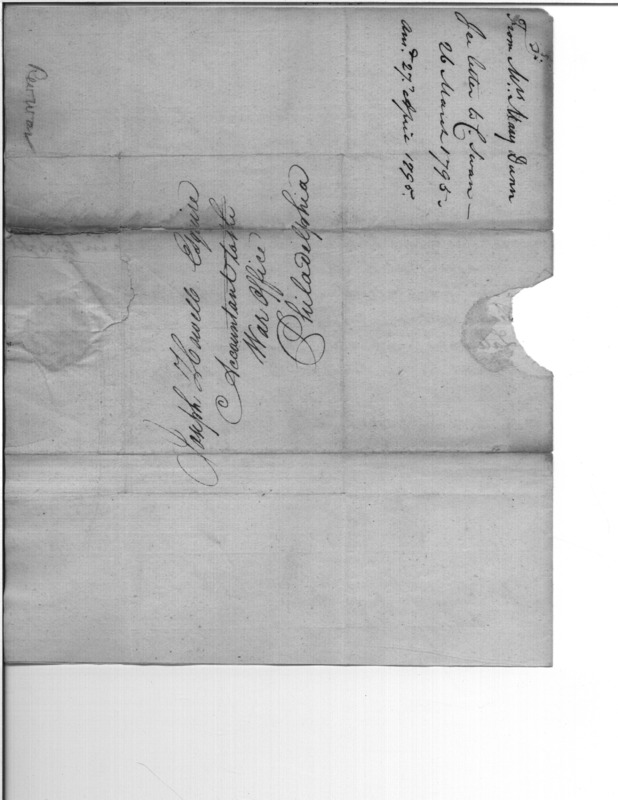 From Mrs. Mary Dunn
letter to C. Swan —
26 March 1795
ansd. 27th April 1795.
Joseph Howell Esquire
Accountant to the
War Office
Philadelphia